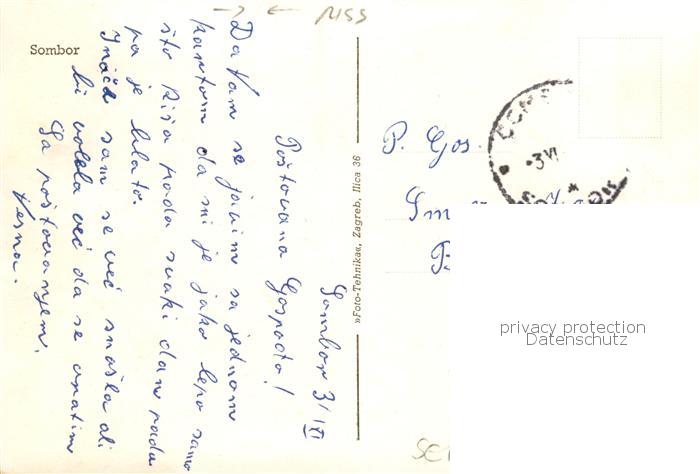 NSS
Sombor
Sombor 3/VI
Poštovana Gospođo!
Da Vam se javim sa jednom
kartom da mi je jako lepo samo
što kiša pada svaki dan pada
pa je blato.
Inače sam se već snašla ali
bi volela već da se vratim
Sa poštovanjem,
Vesna.
»Foto-Tehnika«, Zagreb, Ilica 36
P. Gos.
3 VI
privacy protection
Datenschutz